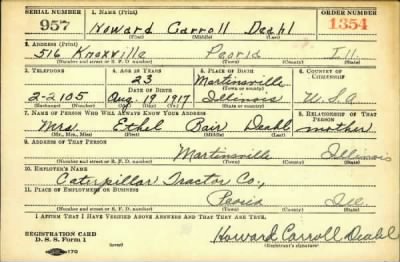 SERIAL NUMBER 1. NAME (Print) ORDER NUMBER
957 Howard Carroll Deahl 1354
(First) (Middle) (Last)
2. ADDRESS (Print)
516 Knoxville Peoria Ill.
(Number and street or R. F. D. number) (Town) (County) (State)
3. TELEPHONE 4. AGE IN YEARS 5. PLACE OF BIRTH 6. COUNTRY OF CITIZENSHIP
23 Martinsville
DATE OF BIRTH (Town or county)
2-2105 Aug. 19 1917 Illinois U.S.A
(Exchange) (Number) (Mo.) (Day) (Yr.) (State or country)
7. NAME OF PERSON WHO WILL ALWAYS KNOW YOUR ADDRESS 8. RELATIONSHIP OF THAT PERSON
Mrs. Ethel Bair Deahl mother
(Mr., Mrs., Miss) (First) (Middle) (Last)
9. ADDRESS OF THAT PERSON
Martinsville Illinois
(Number and street or R. F. D. number) (Town) (County) (State)
10. EMPLOYER'S NAME
Caterpillar Tractor Co.,
11. PLACE OF EMPLOYMENT OR BUSINESS
Peoria Ill.
(Number and street or R. F. D. number) (Town) (County) (State)
I AFFIRM THAT I HAVE VERIFIED ABOVE ANSWERS AND THAT THEY ARE TRUE.
REGISTRATION CARD
D. S. S. Form 1 Howard Carroll Deahl
(Registrant's signature)